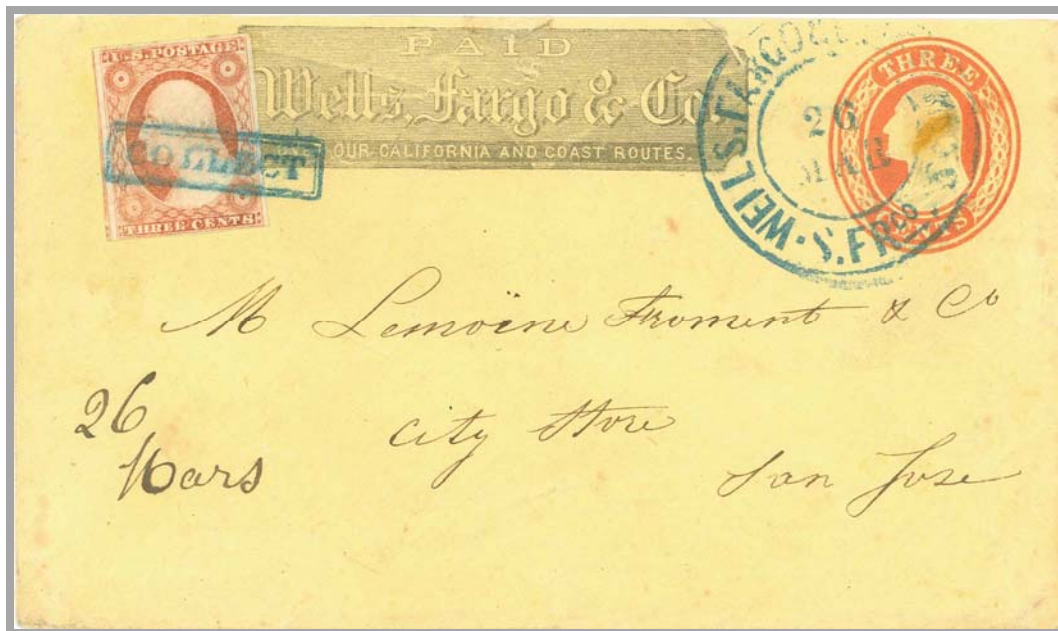 U.S. POSTAGE
THREE CENTS
COLLECT
PAID
Wells, Fargo & Co.
OUR CALIFORNIA AND COAST ROUTES.
WELLS. FARGO &
26
MAR
S. FRCO
THREE
CENTS
M Lemoine Froment & Co
City Store
San Jose
26
Mars